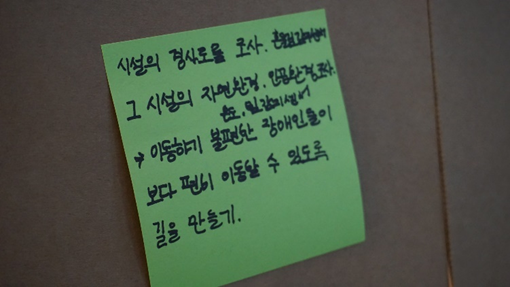 시설의 경사도를 조사.
그 시설의 자연환경, 인공환경조사.
온도, 밀감지센서
→ 이동하기 불편한 장애인들이
보다 편히 이동할 수 있도록
길을 만들기.